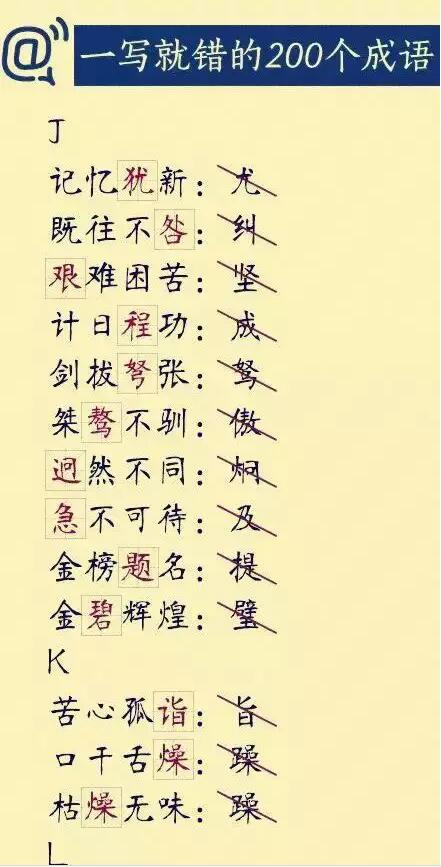 @ 一写就错的200个成语
J
记忆犹新：尤
既往不咎：纠
艰难困苦：坚
计日程功：成
剑拔弩张：驽
桀骜不驯：傲
迥然不同：炯
急不可待：及
金榜题名：提
金碧辉煌：璧
K
苦心孤诣：旨
口干舌燥：躁
枯燥无味：躁
L